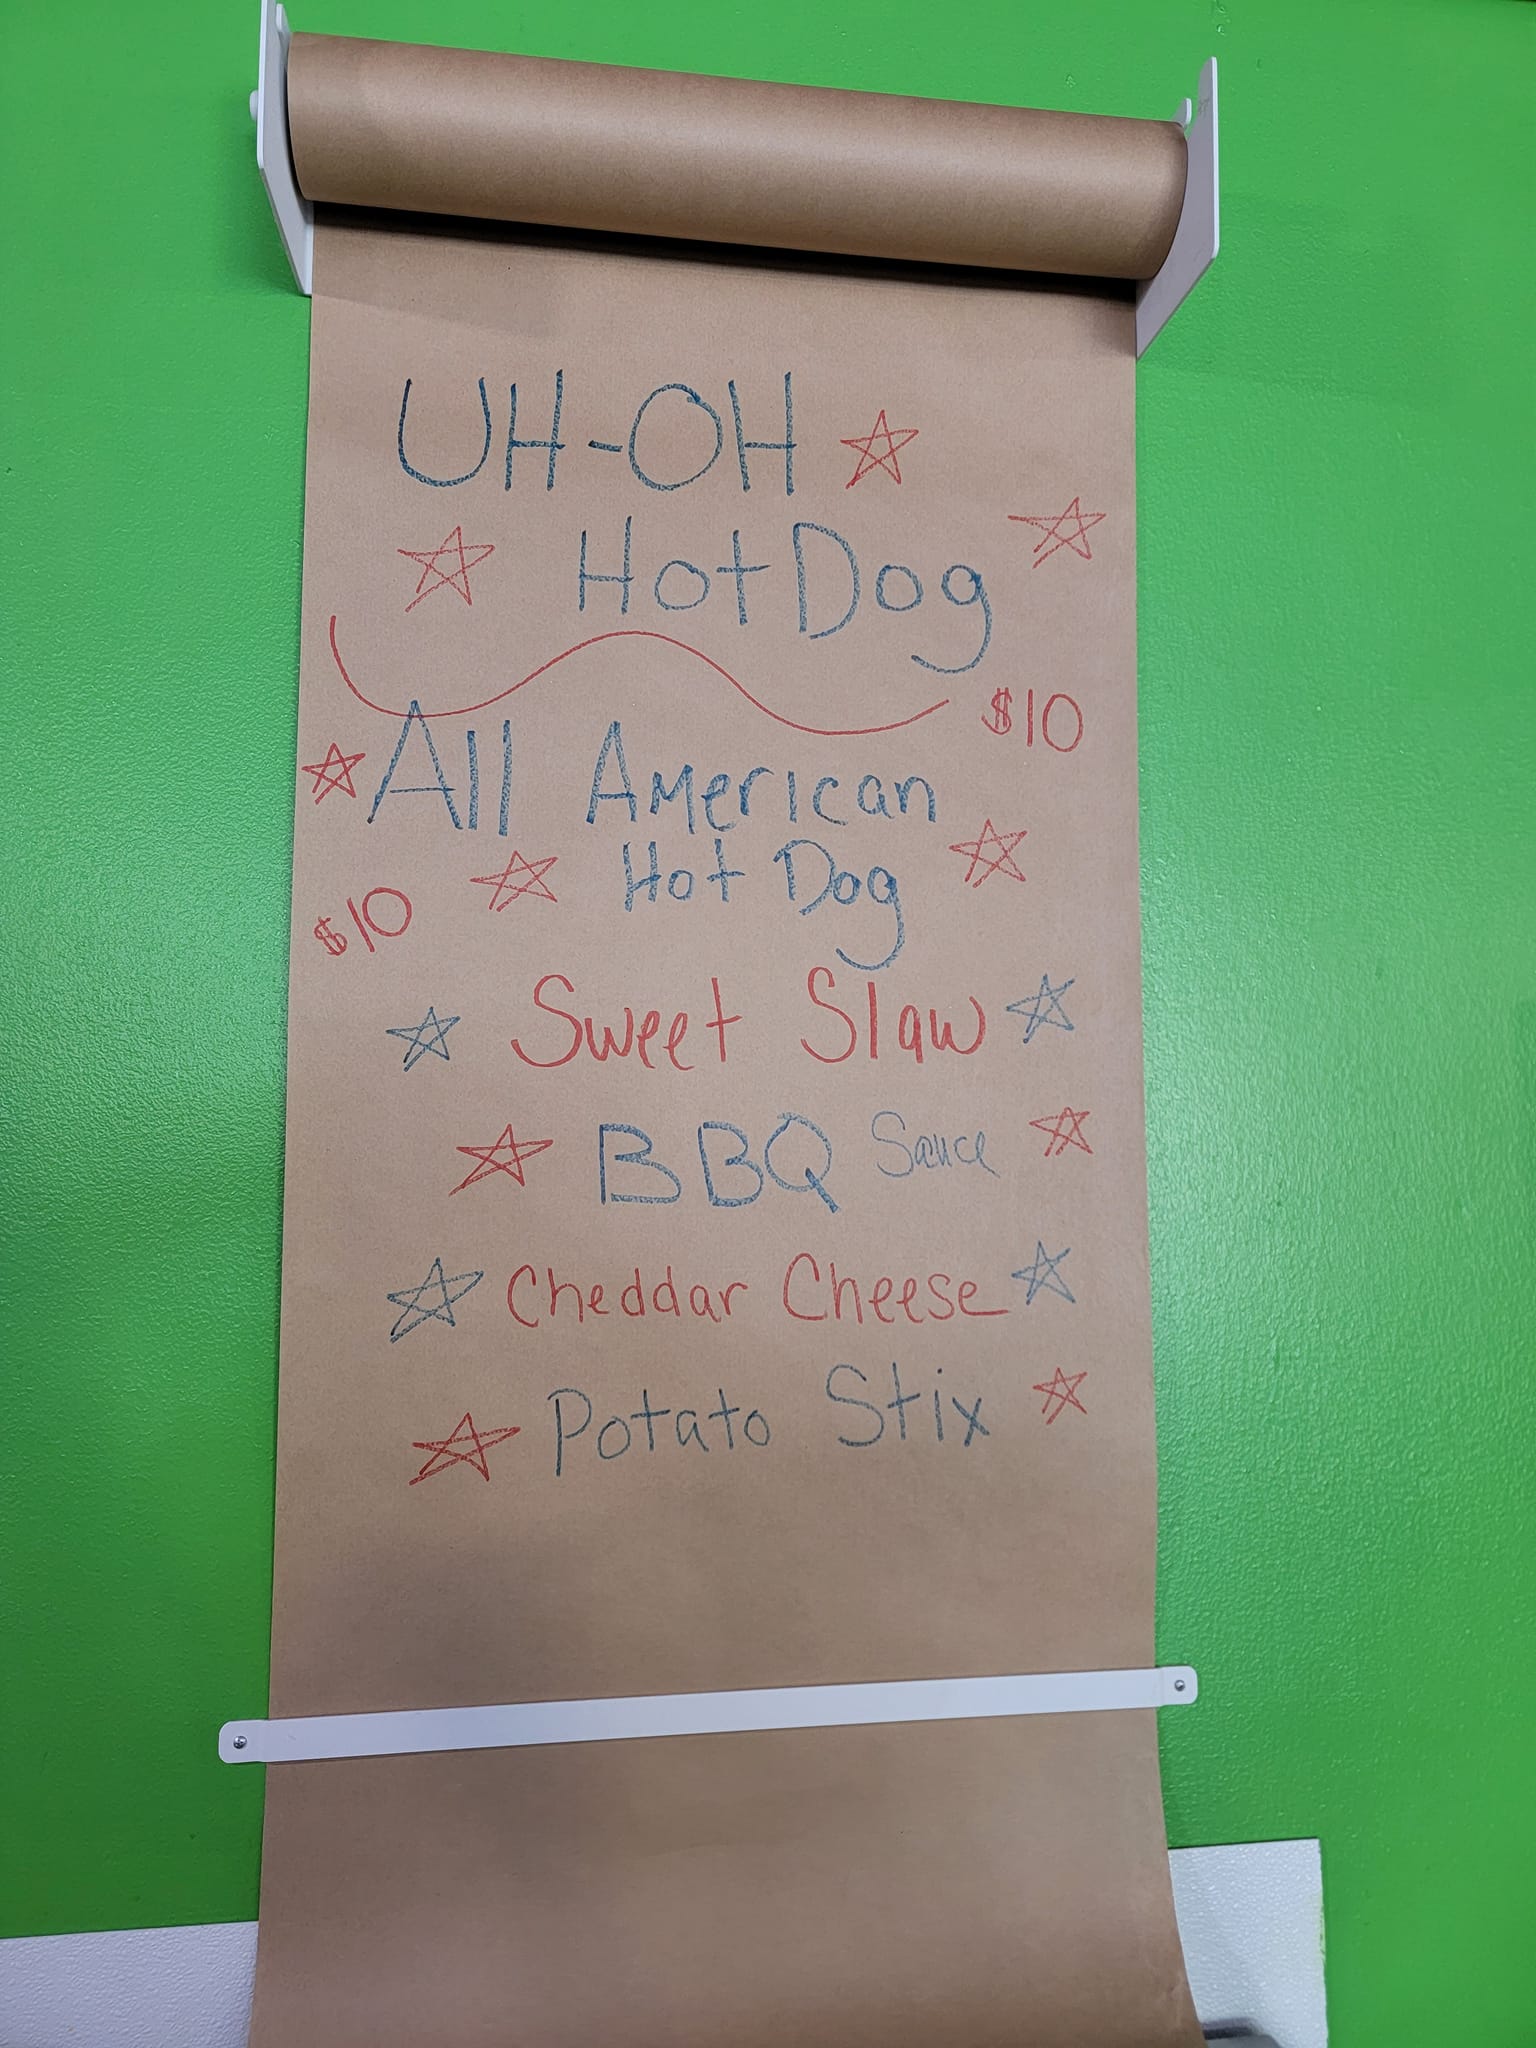 UH-OH
Hot Dog
$10
All American
Hot Dog
$10
Sweet Slaw
BBQ Sauce
Cheddar Cheese
Potato Stix